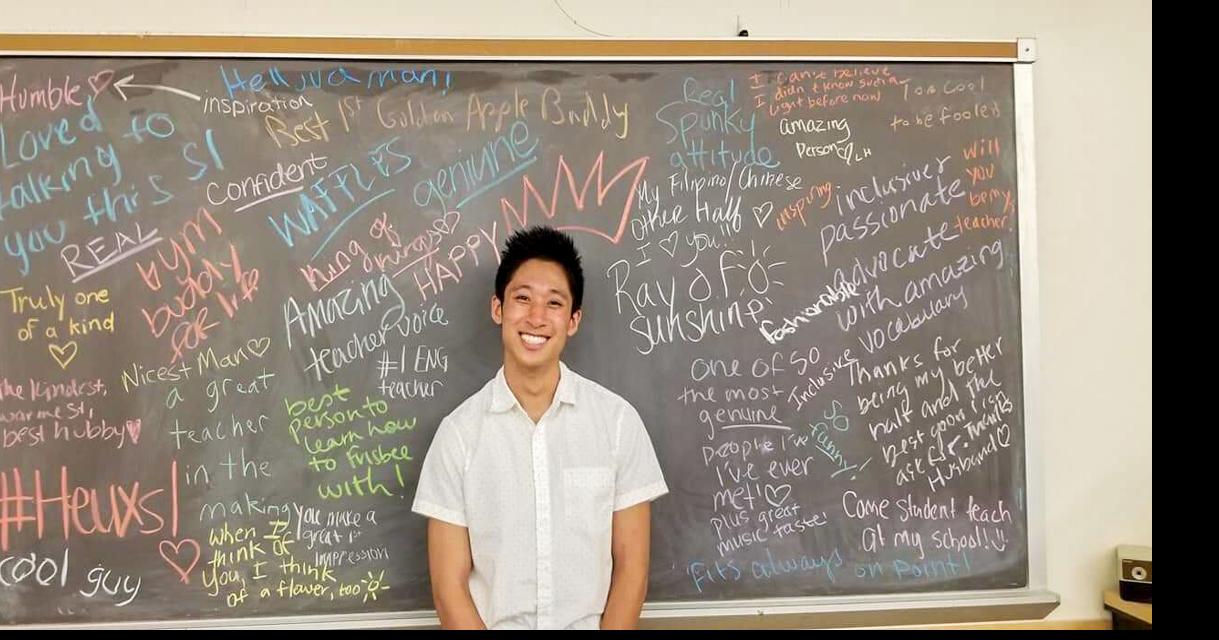 Humble
inspiration
Loved to
talking to
you this S1
REAL
Truly one
of a kind
The kindest,
warmest,
best hubby
#Heuxs1
cool guy
Hell'uva man!
Best 1st Golden Apple Buddy
confident
WAFFLES
geniune
gym
buddy
for life
king of
HAPPY
Amazing
teacher voice
#1 ENG
teacher
Nicest Man
a great
teacher
in the
making
best
person to
learn how
to frisbee
with!
when I
think of
you, I think
of a flower, too
You make a
great 1st
impression
Real
Spunky
attitude
I can't believe
I didn't know such a
light before now
amazing
person LH
Too cool
to be fooled
My Filipino/Chinese
Other Half
I ♡ you!!
inspiring
will
you
be my
teacher?
Ray of
sunshine
inclusive
passionate
advocate
with amazing
vocabulary
fashionable
one of so
the most
genuine
people I've
I've ever
met!
plus great
music taste!
Inclusive
So
funny!
Thanks for
being my better
half and the
best
Husband
Come student teach
at my school!
Fits always on point!